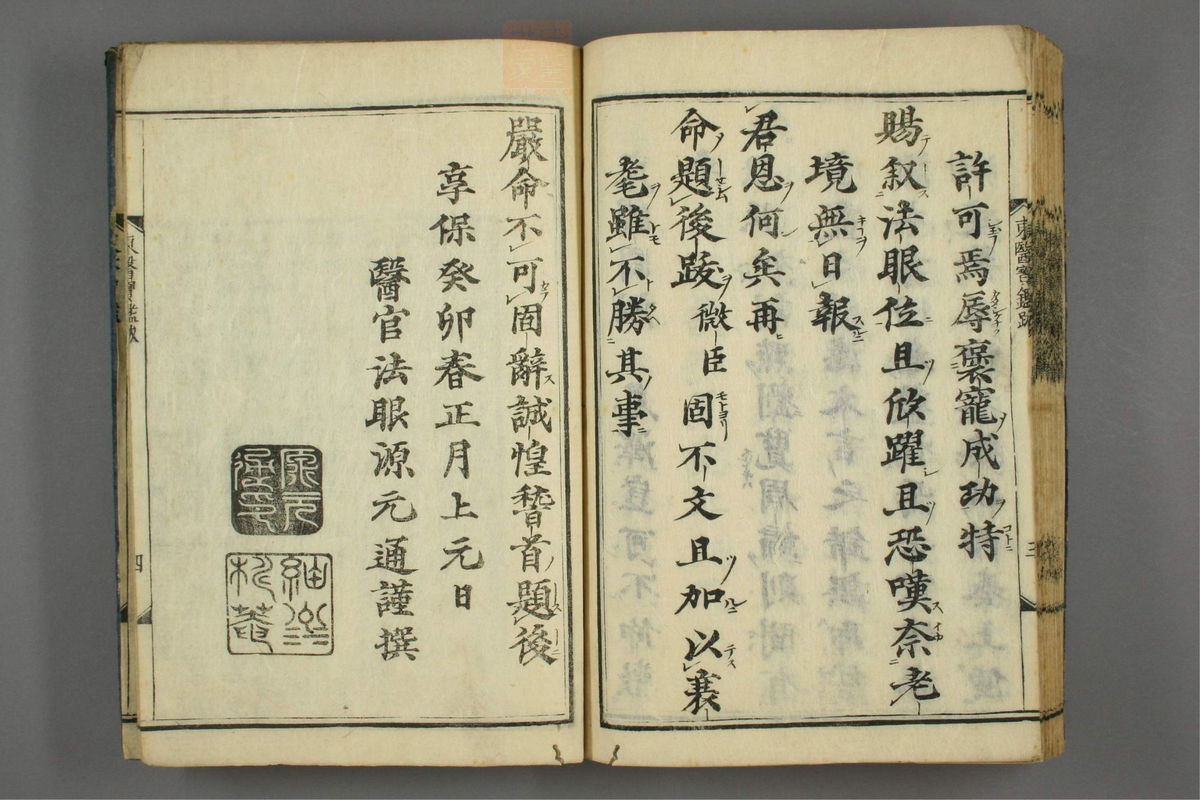 東醫寶鑑跋 三
許可焉辱褒寵成功特
賜叙法眼位且欣躍且恐嘆奈老
境無日報
君恩何矣再
命題後跋微臣固不文且加以衰
耄雖不勝其事
嚴命不可固辭誠惶稽首題後
享保癸卯春正月上元日
醫官法眼源元通謹撰
源元通印
細川桃菴
東醫寶鑑跋 四